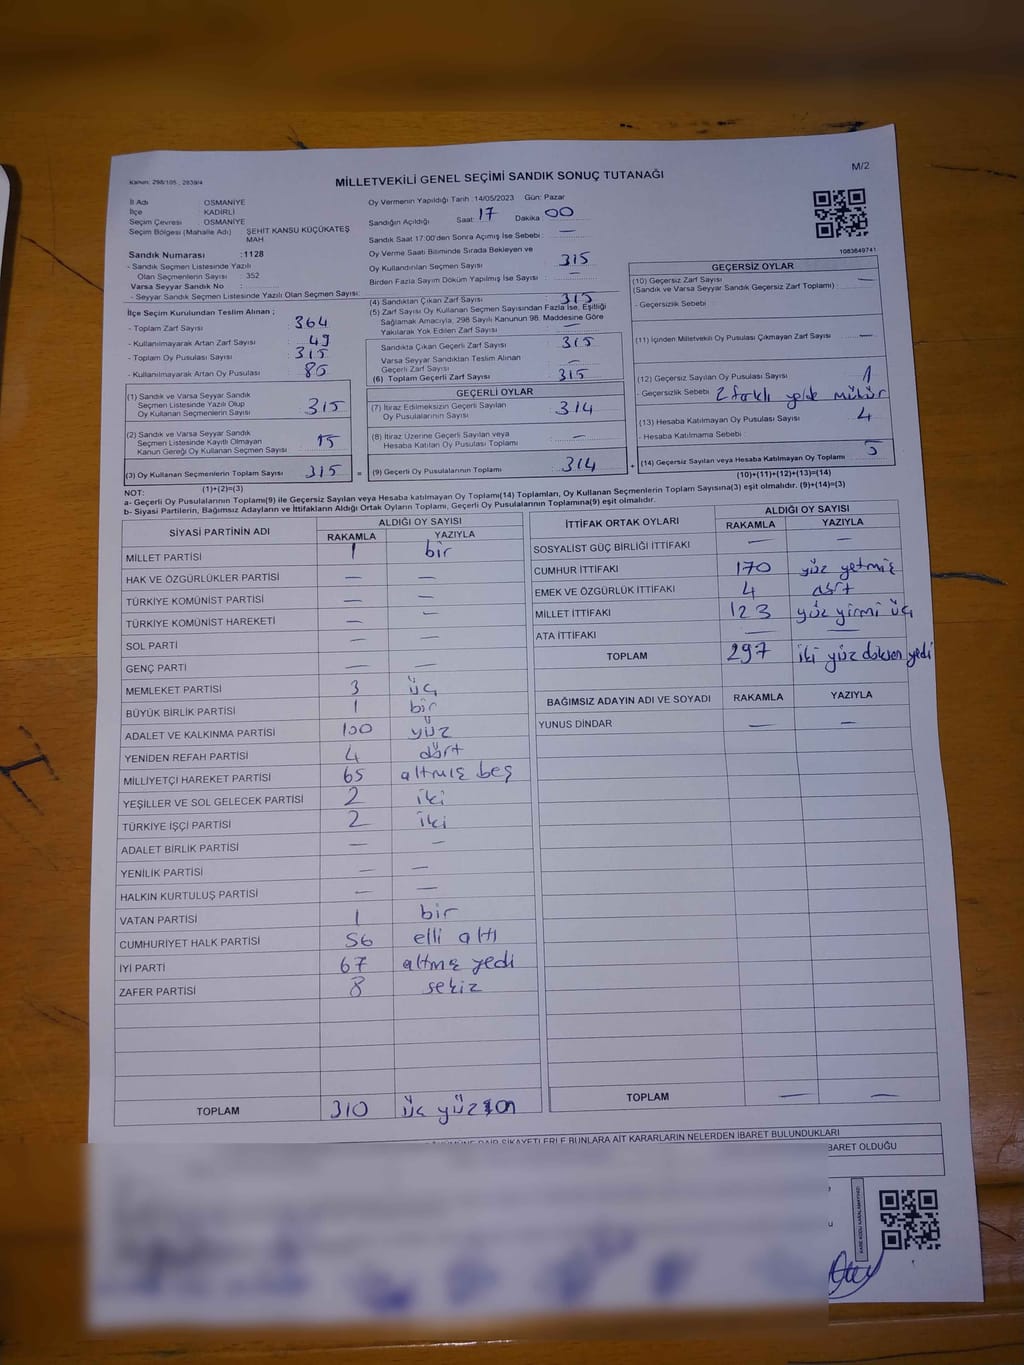 Kanun: 298/105., 2839/4
M/2
MİLLETVEKİLİ GENEL SEÇİMİ SANDIK SONUÇ TUTANAĞI
İl Adı : OSMANİYE
İlçe : KADİRLİ
Seçim Çevresi : OSMANİYE
Seçim Bölgesi (Mahalle Adı) : ŞEHİT KANSU KÜÇÜKATEŞ MAH
Sandık Numarası : 1128
- Sandık Seçmen Listesinde Yazılı
Olan Seçmenlerin Sayısı : 352
Varsa Seyyar Sandık No :
- Seyyar Sandık Seçmen Listesinde Yazılı Olan Seçmen Sayısı:
İlçe Seçim Kurulundan Teslim Alınan ;
- Toplam Zarf Sayısı : 364
- Kullanılmayarak Artan Zarf Sayısı : 49
- Toplam Oy Pusulası Sayısı : 315
- Kullanılmayarak Artan Oy Pusulası : 85
(1) Sandık ve Varsa Seyyar Sandık
Seçmen Listesinde Yazılı Olup
Oy Kullanan Seçmenlerin Sayısı : 315
(2) Sandık ve Varsa Seyyar Sandık
Seçmen Listesinde Kayıtlı Olmayan
Kanun Gereği Oy Kullanan Seçmen Sayısı : 15
(3) Oy Kullanan Seçmenlerin Toplam Sayısı : 315
(1)+(2)=(3)
Oy Vermenin Yapıldığı Tarih : 14/05/2023 Gün: Pazar
Sandığın Açıldığı Saat: 17 Dakika : 00
Sandık Saat 17:00'den Sonra Açımış İse Sebebi : —
Oy Verme Saati Bitiminde Sırada Bekleyen ve
Oy Kullandırılan Seçmen Sayısı : 315
Birden Fazla Sayım Döküm Yapılmış İse Sayısı : —
(4) Sandıktan Çıkan Zarf Sayısı : 315
(5) Zarf Sayısı Oy Kullanan Seçmen Sayısından Fazla İse, Eşitliği
Sağlamak Amacıyla, 298 Sayılı Kanunun 98. Maddesine Göre
Yakılarak Yok Edilen Zarf Sayısı : —
Sandıkta Çıkan Geçerli Zarf Sayısı : 315
Varsa Seyyar Sandıktan Teslim Alınan
Geçerli Zarf Sayısı : —
(6) Toplam Geçerli Zarf Sayısı : 315
GEÇERLİ OYLAR
(7) İtiraz Edilmeksizin Geçerli Sayılan
Oy Pusulalarının Sayısı : 314
(8) İtiraz Üzerine Geçerli Sayılan veya
Hesaba Katılan Oy Pusulası Toplamı : —
= (9) Geçerli Oy Pusulalarının Toplamı : 314 +
1083649741
GEÇERSİZ OYLAR
(10) Geçersiz Zarf Sayısı
(Sandık ve Varsa Seyyar Sandık Geçersiz Zarf Toplamı) : —
- Geçersizlik Sebebi :
(11) İçinden Milletvekili Oy Pusulası Çıkmayan Zarf Sayısı : —
(12) Geçersiz Sayılan Oy Pusulası Sayısı : 1
- Geçersizlik Sebebi : 2 farklı yerde mühür
(13) Hesaba Katılmayan Oy Pusulası Sayısı : 4
- Hesaba Katılmama Sebebi :
(14) Geçersiz Sayılan veya Hesaba Katılmayan Oy Toplamı : 5
(10)+(11)+(12)+(13)=(14)
NOT:
a- Geçerli Oy Pusulalarının Toplamı(9) ile Geçersiz Sayılan veya Hesaba katılmayan Oy Toplamı(14) Toplamları, Oy Kullanan Seçmenlerin Toplam Sayısına(3) eşit olmalıdır. (9)+(14)=(3)
b- Siyasi Partilerin, Bağımsız Adayların ve İttifakların Aldığı Ortak Oyların Toplamı, Geçerli Oy Pusulalarının Toplamına(9) eşit olmalıdır.
SİYASİ PARTİNİN ADI ALDIĞI OY SAYISI
RAKAMLA YAZIYLA
MİLLET PARTİSİ 1 bir
HAK VE ÖZGÜRLÜKLER PARTİSİ — —
TÜRKİYE KOMÜNİST PARTİSİ — —
TÜRKİYE KOMÜNİST HAREKETİ — —
SOL PARTİ — —
GENÇ PARTİ — —
MEMLEKET PARTİSİ 3 üç
BÜYÜK BİRLİK PARTİSİ 1 bir
ADALET VE KALKINMA PARTİSİ 100 yüz
YENİDEN REFAH PARTİSİ 4 dört
MİLLİYETÇİ HAREKET PARTİSİ 65 altmış beş
YEŞİLLER VE SOL GELECEK PARTİSİ 2 iki
TÜRKİYE İŞÇİ PARTİSİ 2 iki
ADALET BİRLİK PARTİSİ — —
YENİLİK PARTİSİ — —
HALKIN KURTULUŞ PARTİSİ — —
VATAN PARTİSİ 1 bir
CUMHURİYET HALK PARTİSİ 56 elli altı
İYİ PARTİ 67 altmış yedi
ZAFER PARTİSİ 8 sekiz
TOPLAM 310 üç yüz on
İTTİFAK ORTAK OYLARI ALDIĞI OY SAYISI
RAKAMLA YAZIYLA
SOSYALİST GÜÇ BİRLİĞİ İTTİFAKI — —
CUMHUR İTTİFAKI 170 yüz yetmiş
EMEK VE ÖZGÜRLÜK İTTİFAKI 4 dört
MİLLET İTTİFAKI 123 yüz yirmi üç
ATA İTTİFAKI — —
TOPLAM 297 iki yüz doksan yedi
BAĞIMSIZ ADAYIN ADI VE SOYADI RAKAMLA YAZIYLA
YUNUS DİNDAR — —
TOPLAM — —
DAİR ŞİKAYETLERLE BUNLARA AİT KARARLARIN NELERDEN İBARET BULUNDUKLARI
İBARET OLDUĞU